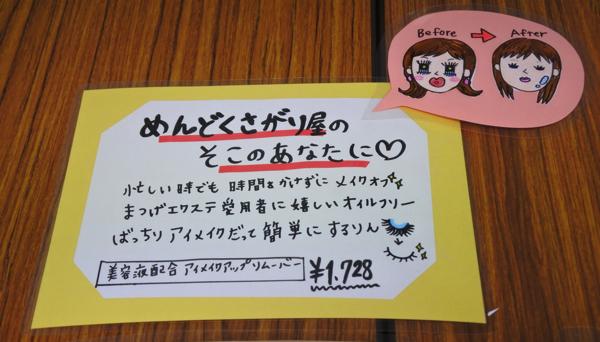 Before → After
めんどくさがり屋の
そこのあなたに♡
忙しい時でも 時間をかけずに メイクオフ
まつげエクステ愛用者に嬉しいオイルフリー
ばっちり アイメイクだって簡単にするりん
美容液配合 アイメイクアップリムーバー ¥1,728